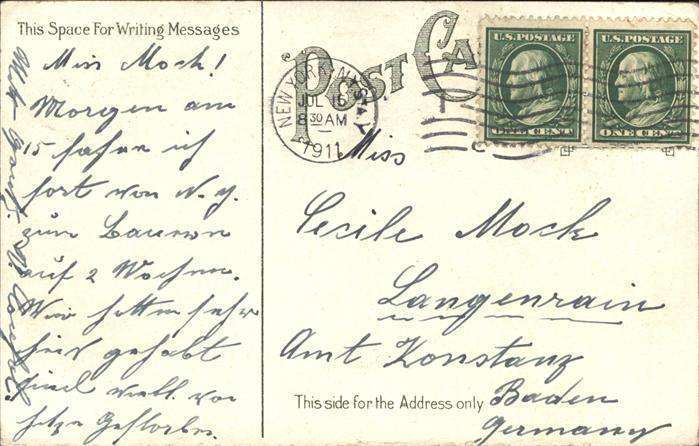 This Space For Writing Messages
Miss Mock!
Morgen am
15 fahre ich
fort von N. Y.
zum Bauern
auf 2 Wochen.
Wir hatten sehr
heis gehabt
sind viele vor
hitze Gestorben.
POST CA
NEW YORK, N.Y.
JUL 15
8 30 AM
1911
U.S. POSTAGE
ONE CENT
U.S. POSTAGE
ONE CENT
Miss
Cecile Mock
Langenrain
Amt Konstanz
Baden
Germany
This side for the Address only